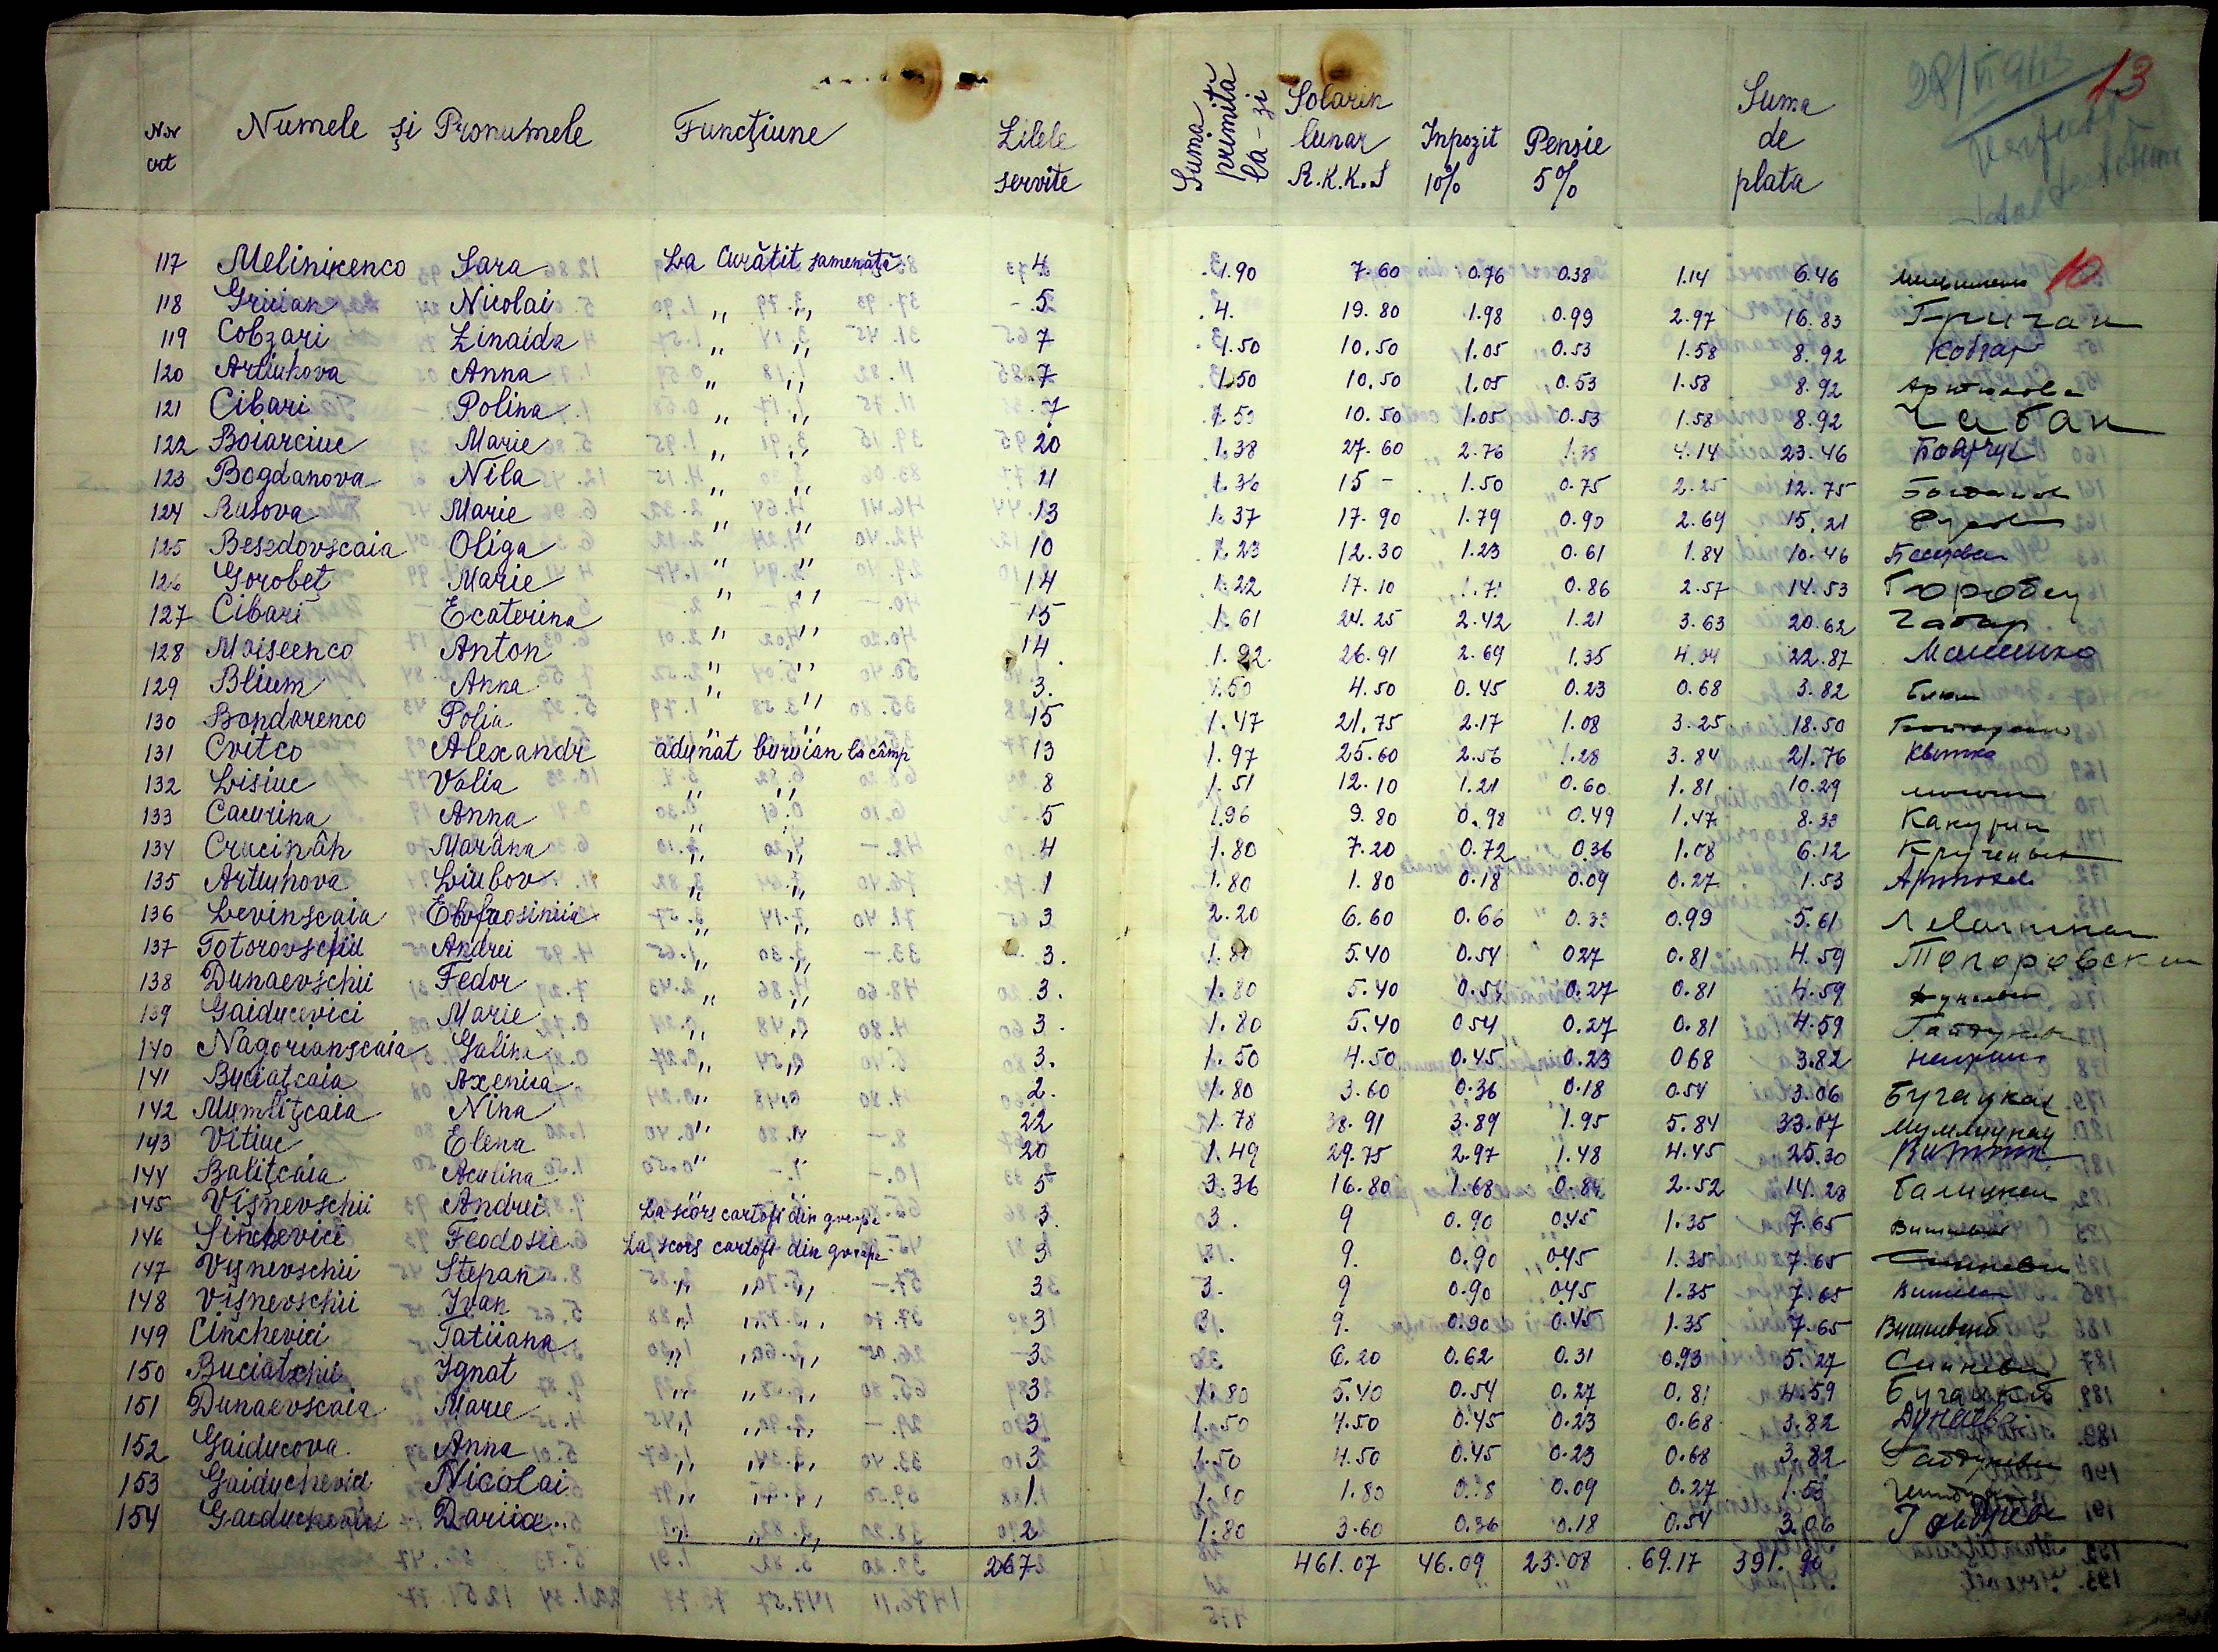 28/VI 943 13
Nr crt Numele și Pronumele Funcțiune Zilele servite Suma primită la-zi Solarin lunar R.K.K.S Inpozit 10% Pensie 5% Suma de plata
117 Melinicenco Sara La Curătit samenață 4 1.90 7.60 0.76 0.38 1.14 6.46 10
118 Grician Nicolai " " 5 4. 19.80 1.98 0.99 2.97 16.83 Гричан
119 Cobzari Zinaida " " 7 1.50 10.50 1.05 0.53 1.58 8.92 Кобзар
120 Artiuhova Anna " " 7 1.50 10.50 1.05 0.53 1.58 8.92 Артюхова
121 Cibari Polina " " 7 1.50 10.50 1.05 0.53 1.58 8.92 Чабан
122 Boiarciuc Marie " " 20 1.38 27.60 2.76 1.38 4.14 23.46 Боярчук
123 Bogdanova Nila " " 11 1.36 15 - 1.50 0.75 2.25 12.75
124 Rusova Marie " " 13 1.37 17.90 1.79 0.90 2.69 15.21
125 Beszdovscaia Oliga " " 10 1.23 12.30 1.23 0.61 1.84 10.46
126 Gorobeț Marie " " 14 1.22 17.10 1.71 0.86 2.57 14.53 Горобец
127 Cibari Ecaterina " " 15 1.61 24.25 2.42 1.21 3.63 20.62 Чабар
128 Moiseenco Anton " " 14 1.92 26.91 2.69 1.35 4.04 22.87
129 Blium Anna " " 3. 1.50 4.50 0.45 0.23 0.68 3.82 Блюм
130 Bondarenco Polia " " 15 1.47 21.75 2.17 1.08 3.25 18.50
131 Cvitco Alexandr adunat buruian la câmp 13 1.97 25.60 2.56 1.28 3.84 21.76 Квитко
132 Lisiuc Valia " " 8 1.51 12.10 1.21 0.60 1.81 10.29
133 Cacurina Anna " " 5 1.96 9.80 0.98 0.49 1.47 8.33 Какурин
134 Crucinâh Marâna " " 4 1.80 7.20 0.72 0.36 1.08 6.12 Крученых
135 Artiuhova Liubov " " 1 1.80 1.80 0.18 0.09 0.27 1.53
136 Levinscaia Ebofrosiniia " " 3 2.20 6.60 0.66 0.33 0.99 5.61
137 Totorovschii Andrei " " 3. 1.80 5.40 0.54 027 0.81 4.59 Тоторовский
138 Dunaevschii Fedor " " 3. 1.80 5.40 0.54 0.27 0.81 4.59
139 Gaiducevici Marie " " 3. 1.80 5.40 054 0.27 0.81 4.59
140 Nagorianscaia Galina " " 3. 1.50 4.50 0.45 0.23 068 3.82
141 Buciațcaia Axenica " " 2. 1.80 3.60 0.36 0.18 0.54 3.06 Бугацкая
142 Mumlițcaia Nina " " 22 1.78 38.91 3.89 1.95 5.84 33.07 Мумлицкая
143 Vitiuc Elena " " 20 1.49 29.75 2.97 1.48 4.45 25.30 Витюк
144 Balițcaia Aculina " " 5 3.36 16.80 1.68 0.84 2.52 14.28 Балицкая
145 Vișnevschii Andrei La scors cartofi din groapa 3. 3. 9 0.90 045 1.35 7.65
146 Sinchevici Feodosie La scors cartofi din groapa 3 3. 9. 0.90 045 1.35 7.65
147 Vișnevschii Stepan " " 3 3. 9 0.90 045 1.35 7.65
148 Vișnevschii Ivan " " 3 3. 9. 0.90 0.45 1.35 7.65
149 Cinchevici Tatiiana " " 3 6.20 0.62 0.31 0.93 5.27
150 Buciatschii Ignat " " 3 1.80 5.40 0.54 0.27 0.81 4.59 Бугацкий
151 Dunaevscaia Marie " " 3 1.50 4.50 0.45 0.23 0.68 3.82 Дунаева
152 Gaiducova Anna " " 3 1.50 4.50 0.45 0.23 0.68 3.82
153 Gaiduchevici Nicolai " " 1. 1.80 1.80 0.18 0.09 0.27 1.53
154 Gaiduchevici Dariia " " 2 1.80 3.60 0.36 0.18 0.54 3.06
267 461.07 46.09 23.08 69.17 391.90